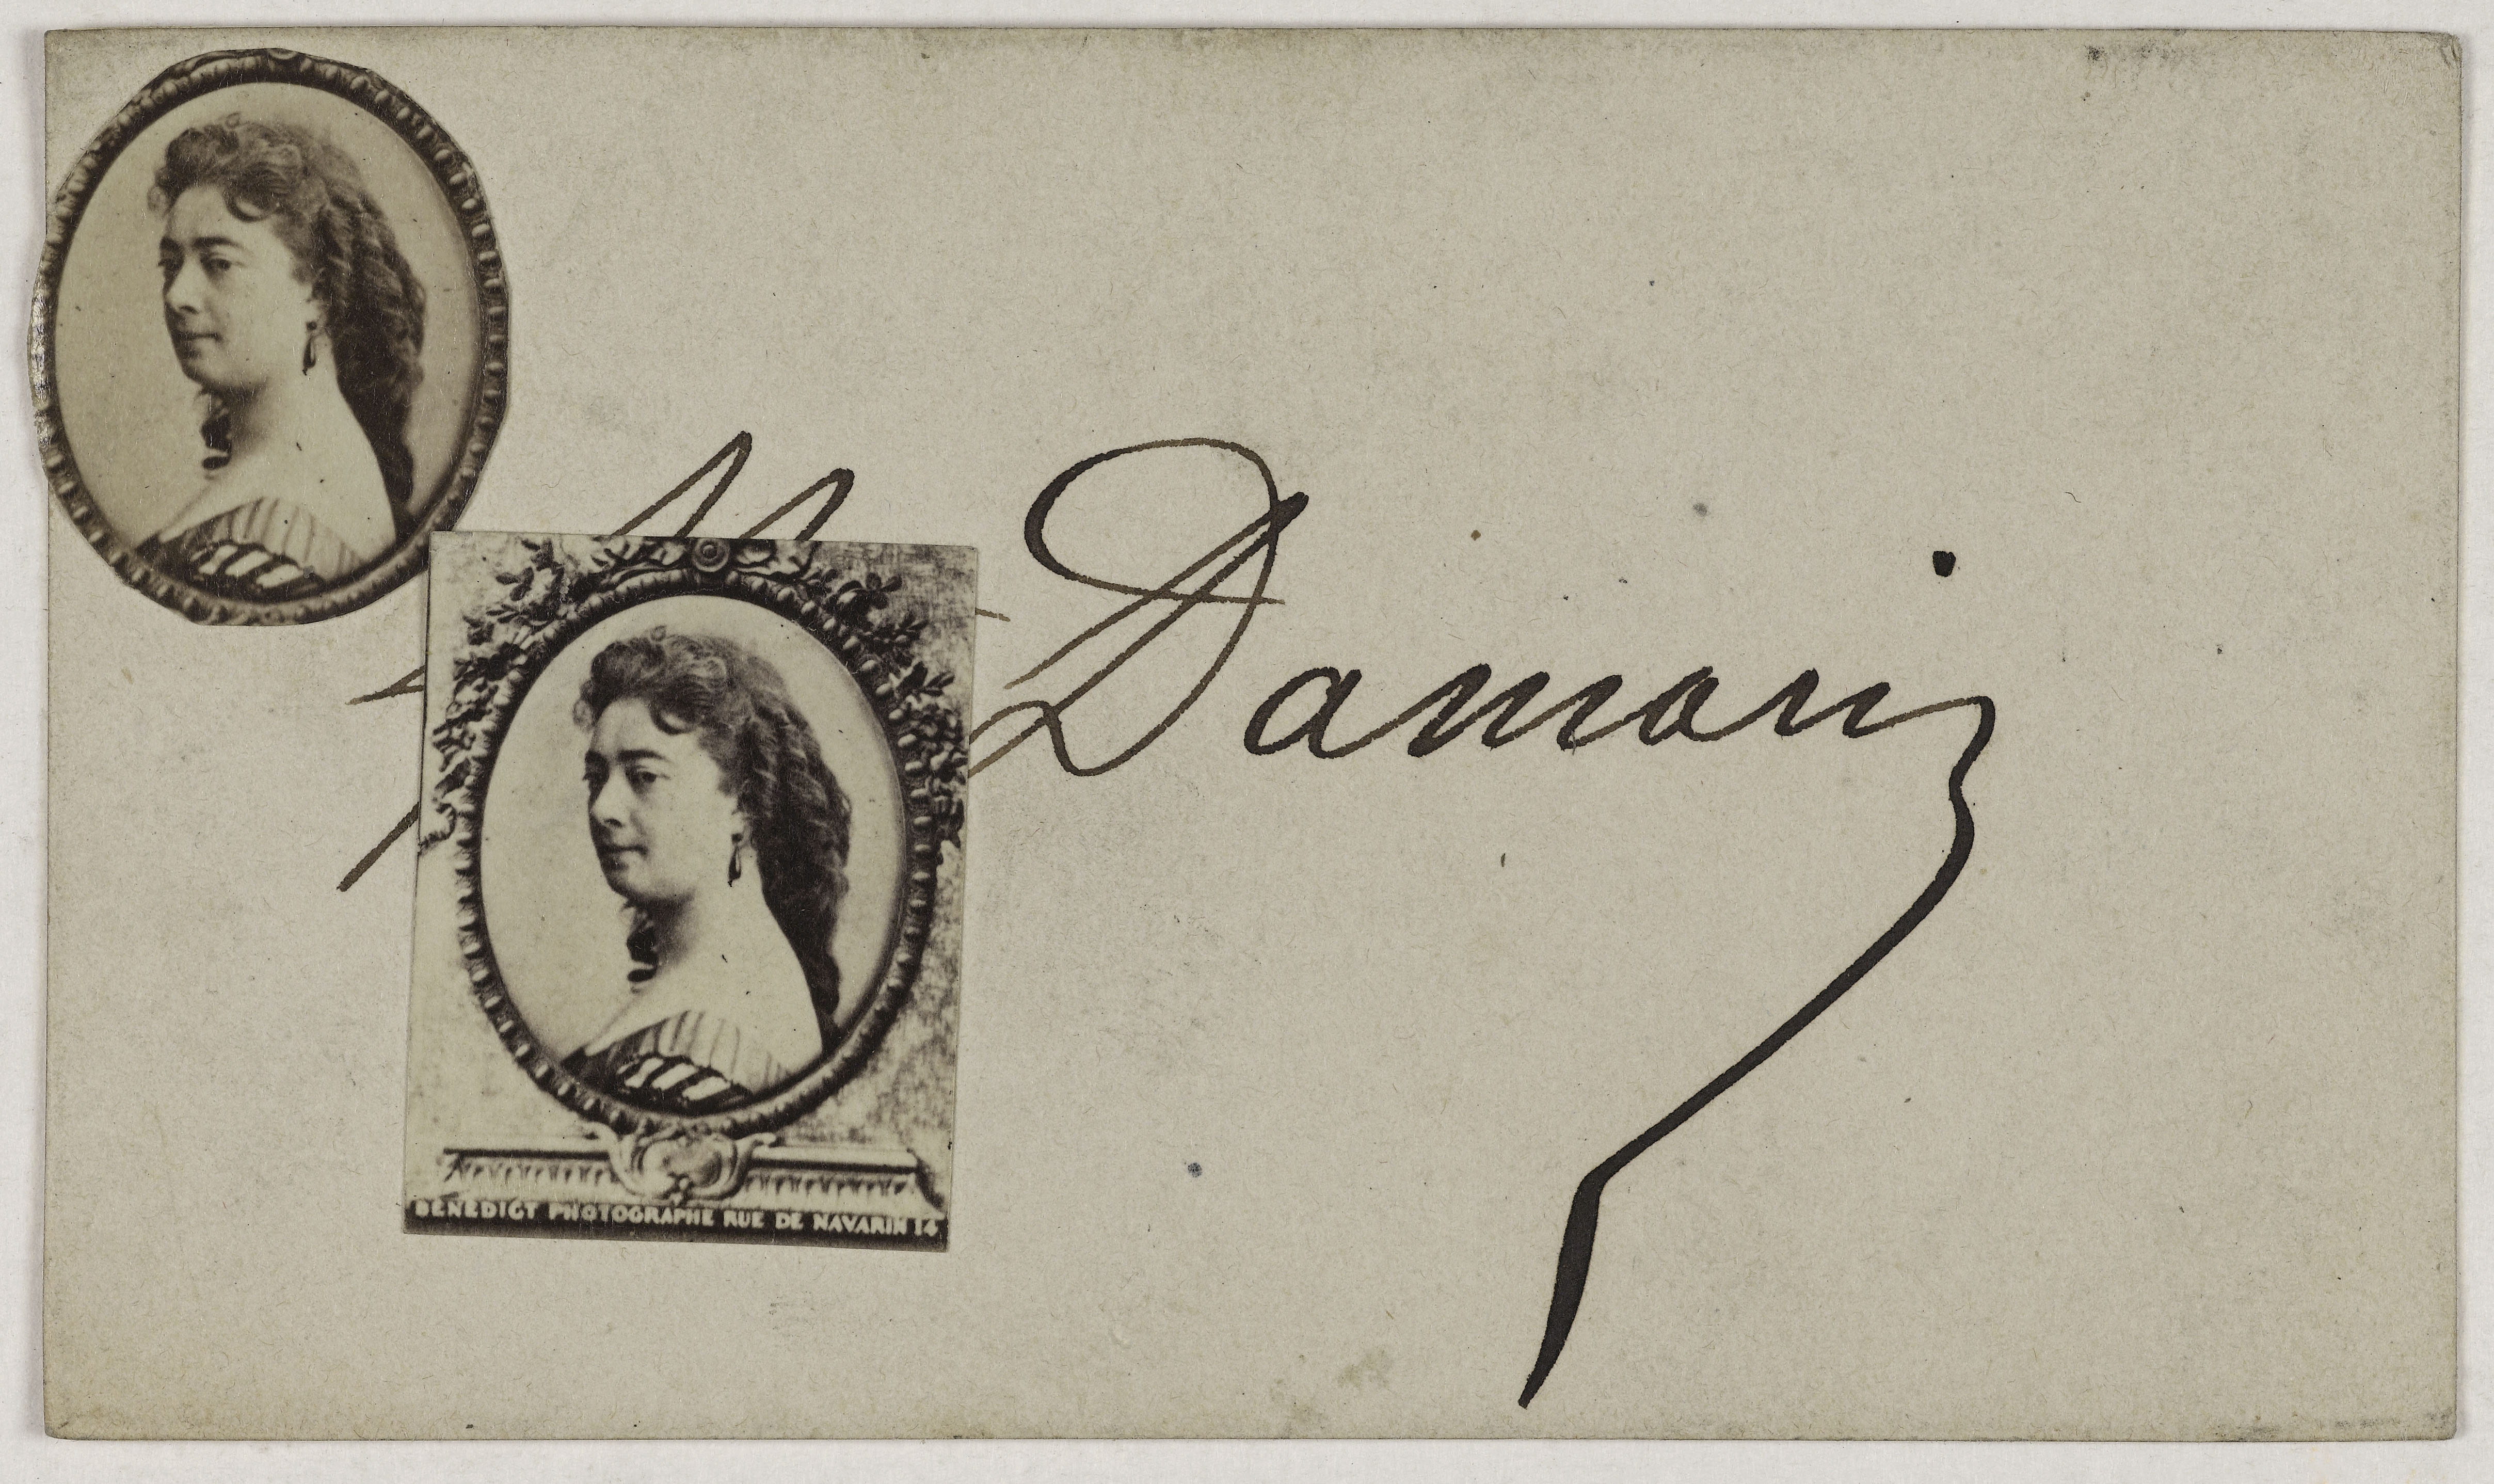 M Damoin
BENEDICT PHOTOGRAPHE RUE DE NAVARIN 14